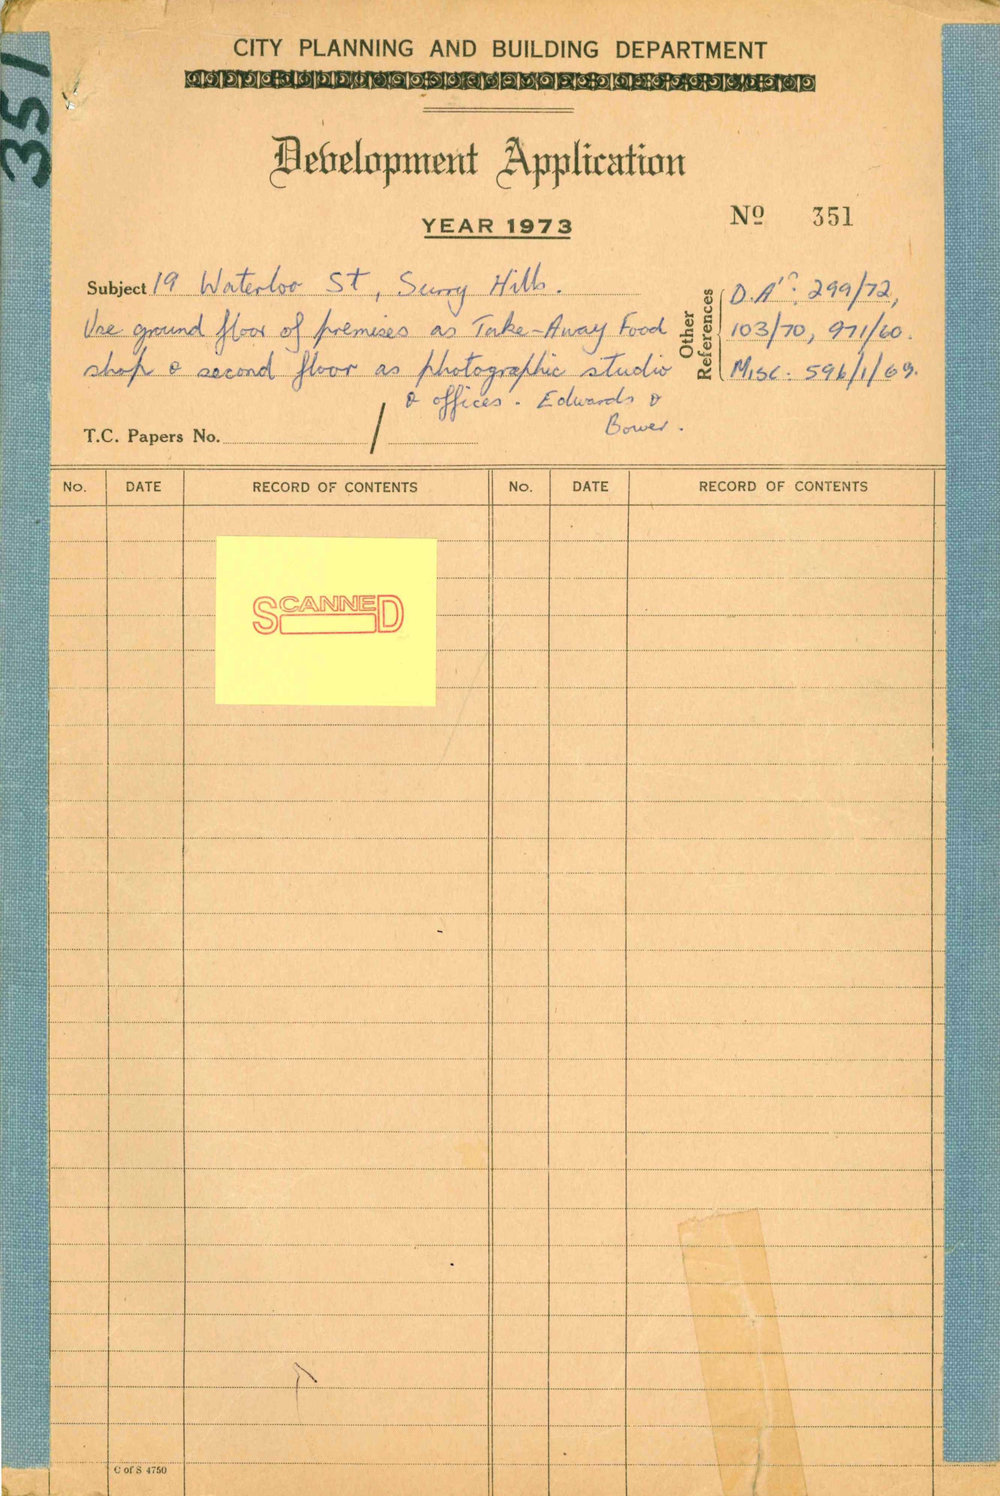 351
CITY PLANNING AND BUILDING DEPARTMENT
Development Application
YEAR 1973
No 351
Subject 19 Waterloo St, Surry Hills.
Use ground floor of premises as Take-Away Food
shop & second floor as photographic studio
& offices. Edwards &
Bower.
Other References
D.A's: 299/72,
103/70, 971/60.
Misc. 596/1/69.
T.C. Papers No. /
No. DATE RECORD OF CONTENTS No. DATE RECORD OF CONTENTS
SCANNED
C of S 4750